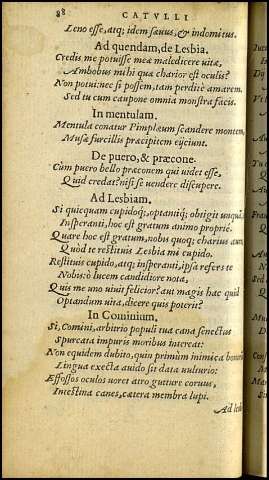 88 CATVLLI
Leno esse, atq; idem sæuus, & indomitus.
Ad quendam, de Lesbia.
Credis me potuisse meæ maledicere vitæ,
Ambobus mihi quæ charior est oculis?
Non potui: nec si possem, tam perditè amarem,
Sed tu cum caupone omnia monstra facis.
In mentulam.
Mentula conatur Pimplæum scandere montem,
Musæ furcillis præcipitem eijciunt.
De puero, & præcone.
Cùm puero bello præconem qui uidet esse,
Quid credat? nisi se uendere discupere.
Ad Lesbiam.
Si quicquam cupidoq́;, optantiq́; obtigit unquã,
Insperanti, hoc est gratum animo propriè.
Quare hoc est gratum, nobis quoq; charius auro,
Quòd te restituis Lesbia mi cupido.
Restituis cupido, atq; insperanti, ipsa refers te
Nobis: ò lucem candidiore nota,
Quis me uno uiuit felicior? aut magis hac quid
Optandum uita, dicere quis poterit?
In Cominium.
Si, Comini, arbitrio populi tua cana senectus
Spurcata impuris moribus intereat:
Non equidem dubito, quin primùm inimica bonorũ
Lingua execta auido sit data uulturio:
Effossos oculos uoret atro guture coruus,
Intestina canes, cætera membra lupi.
Ad Lesb